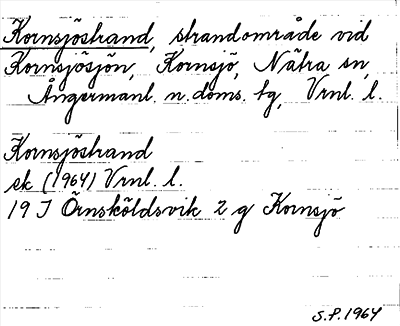 Kornsjöstrand, strandområde vid
Kornsjösjön, Kornsjö, Nätra sn,
Ångermanl. n. doms. tg, Vrnl. l.
Kornsjöstrand
ek (1964) Vrnl. l.
19 J Örnsköldsvik 2 g Kornsjö
S.P. 1964